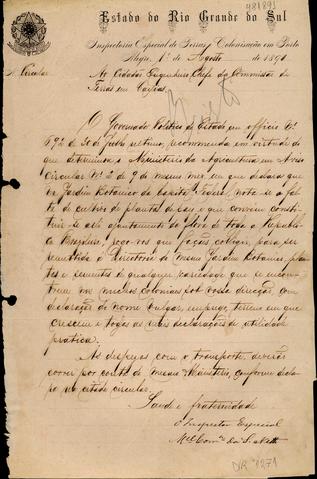 481891
Estado do Rio Grande do Sul
Inspectoria Especial de Terras e Colonisação em Porto
Alegre, 1º de Agosto de 1891
Nº Circular
Ao Cidadão Engenheiro Chefe da Commissão de
Terras em Caxias,
O Governador Politico do Estado em officio Nº
692 de 30 de Julho ultimo, recommenda em virtude do
que determinou o Ministerio da Agricultura em Aviso
circular Nº 2 de 9 do mesmo mez, em que declara que
no Jardim Botanico da Capital Federal, nota-se a fal-
ta de cultivo de plantas de que convém constitu-
ir-se ali ajuntamento da flora de toda a Republi-
ca Brazileira, rogo-vos que façaes colligir, para ser
remettido á Directoria do mesmo Jardim Botanico, plan-
tas e sementes de qualquer variedade que se encon-
trem nos nucleos coloniaes sob vossa direcção, com
declaração do nome vulgar, emprego, terreno em que
crescem e todas as mais declarações de utilidade
pratica.
As despezas com o transporte, deverão
correr por conta do mesmo Ministerio, conforme decla-
ra na citada circular.
Saude e fraternidade
O Inspector Especial
Mel
DR 1271